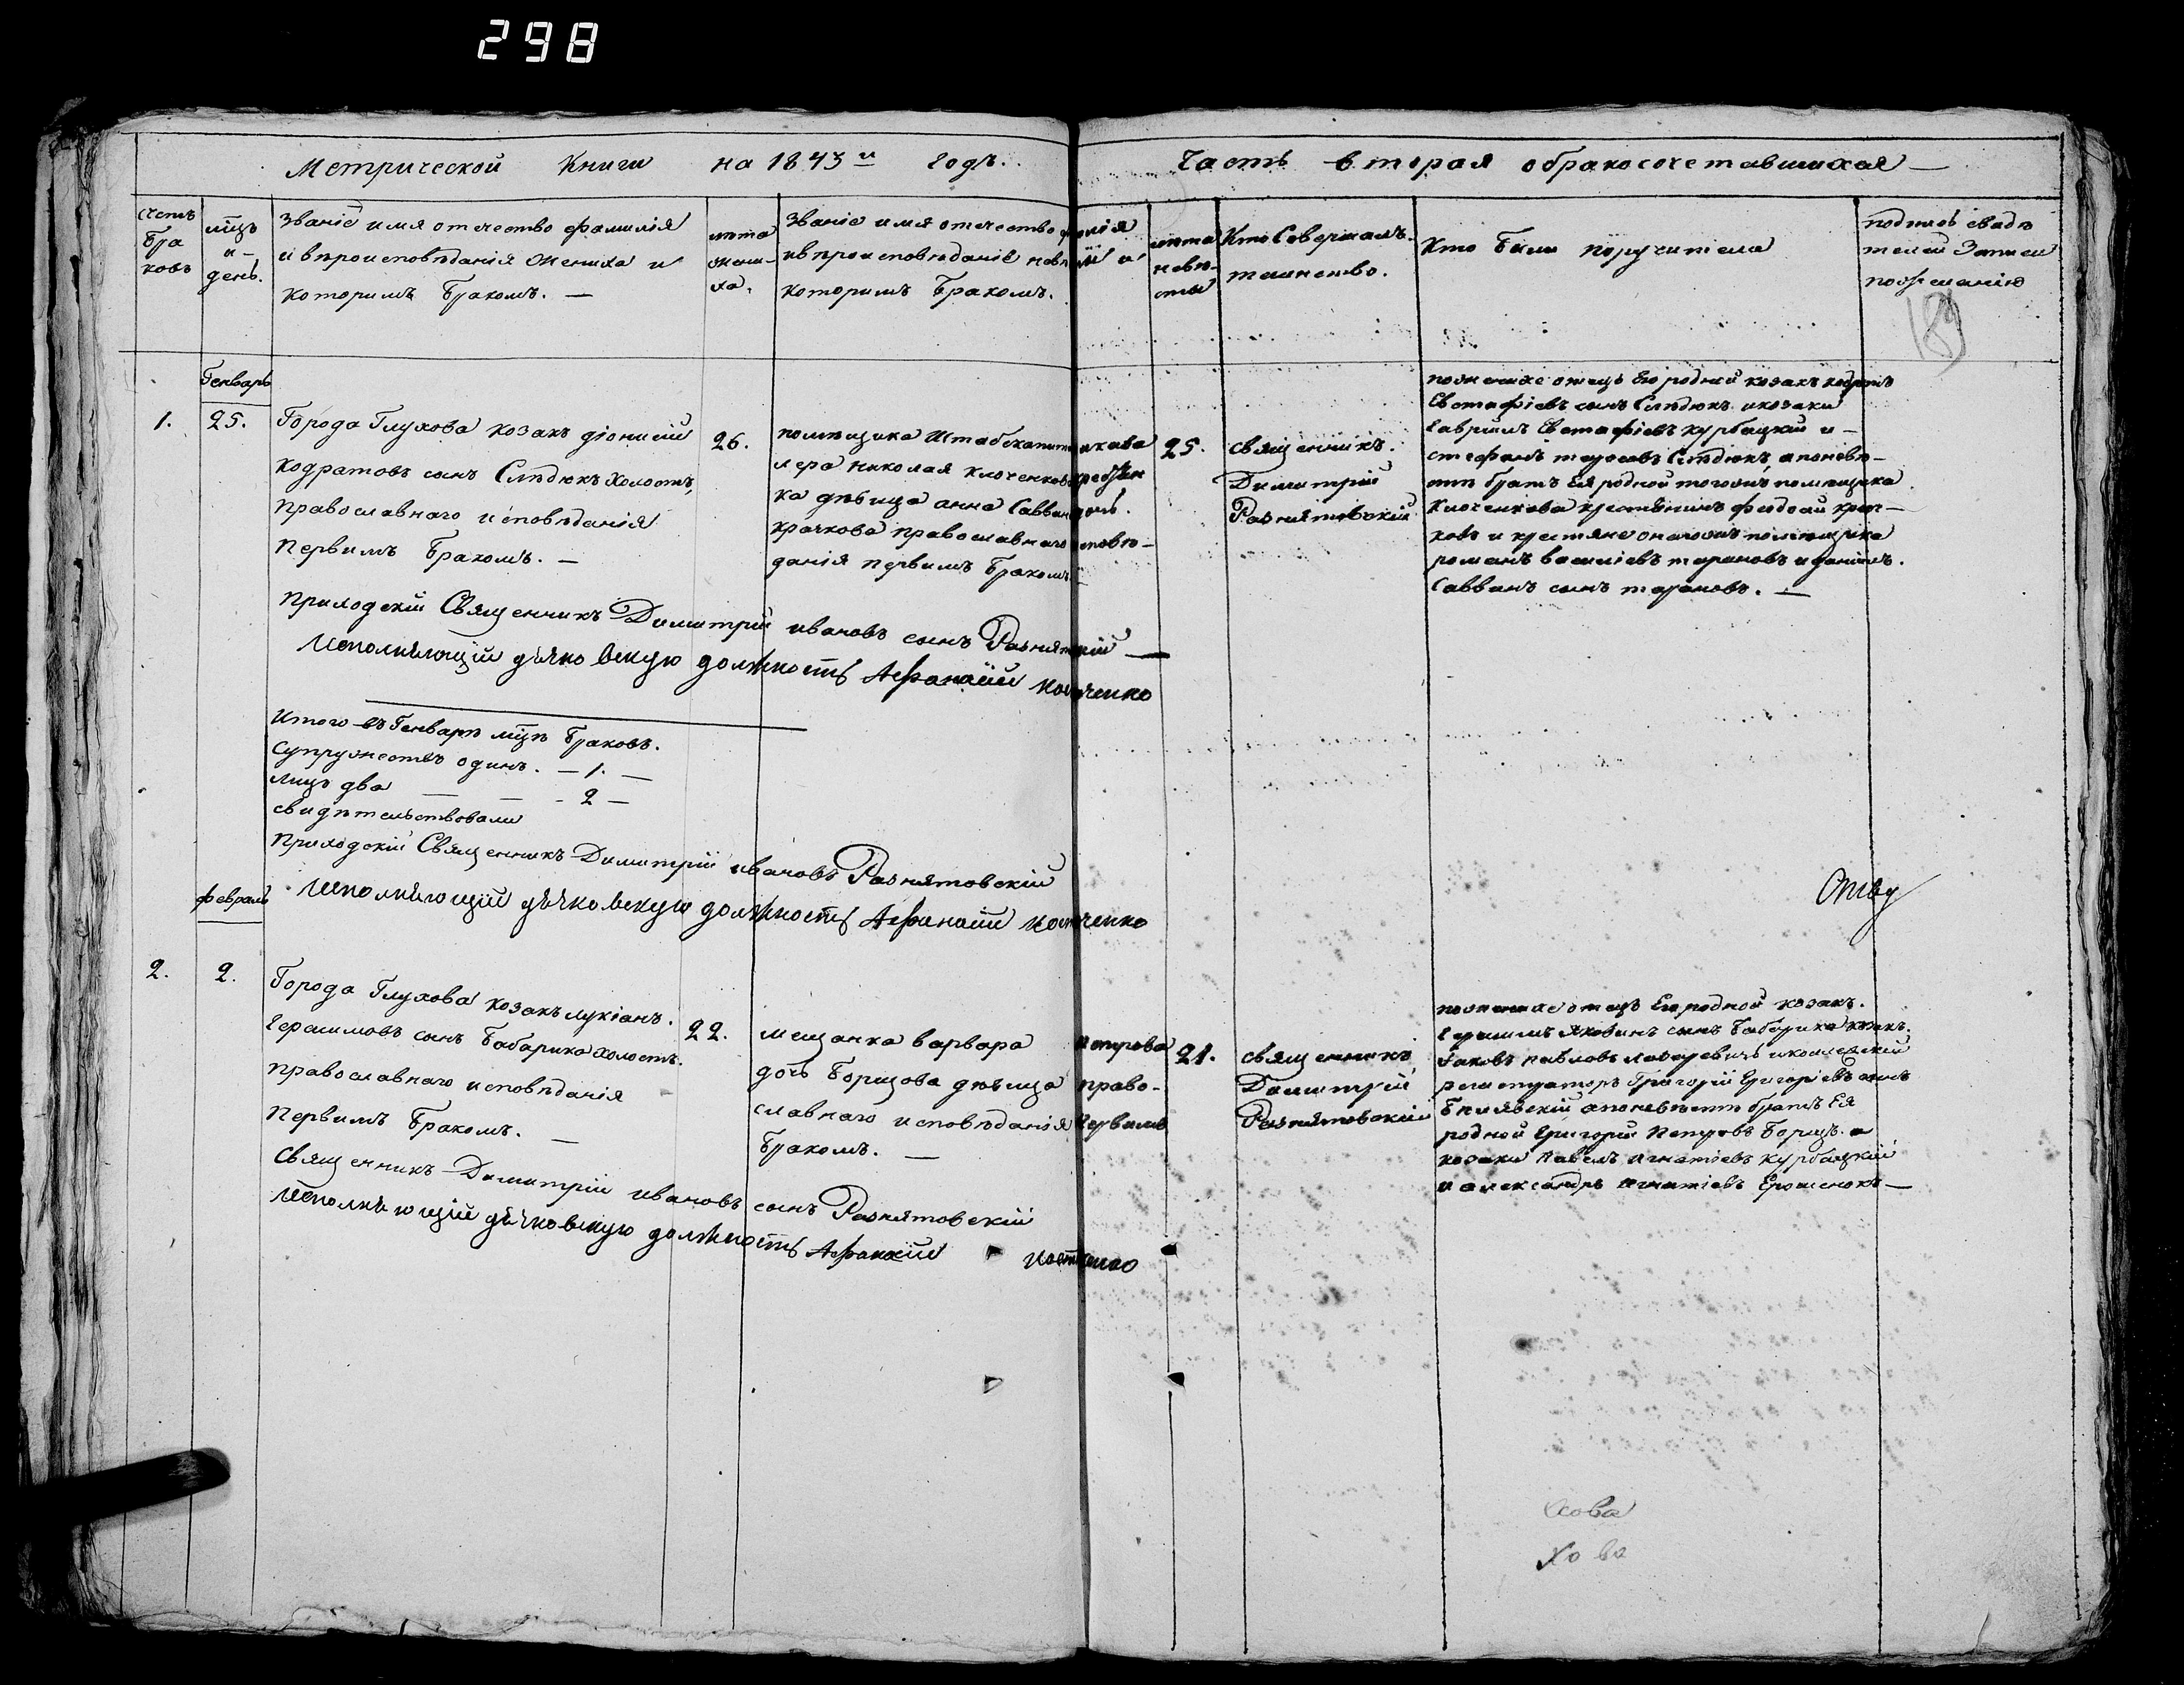 298
Метрической Книги на 1843й годъ.
Часть вторая обракосочетавшихся —
счетъ бра ковъ
мцъ и день.
Званіе имя отечество фамилія
и вѣроисповѣданія Жениха и
которимъ Бракомъ. —
лѣта жени-ха.
Званіе имя отечество фамилія
и вѣроисповѣданіе невѣсти и
которимъ Бракомъ.
лѣта невѣ-сты
Кто Совершалъ
таинство.
Кто Были поручители
подпись свидѣ
телей Записи
по желанію
189
Генварь
1.
25.
Города Глухова козакъ діонисій
кодратовъ сынъ Слѣдюкъ холостъ,
православнаго исповѣданія
Первимъ Бракомъ. —
26.
помѣщика Штабскапитана кава
лера николая клоченкова крестьян
ка дѣвица анна Саввина дочь.
крачкова православнаго исповѣ-
данія первимъ Бракомъ —
25.
священникъ.
Димитрій
Разнятовскій
по женихе отецъ Его родной козакъ кодратъ
Евстафіевъ сынъ Слѣдюкъ и козаки
Гавріилъ Евстафіевъ Курбацкій и —
стефанъ тарасовъ Слѣдюкъ, а по невѣ-
стѣ братъ Ея родной тогожъ помѣщика
Клоченкова крестьянинъ феодосій крач-
ковъ и крестяне оногожъ помѣщика
романъ василіевъ тарановъ и даніилъ.
Саввинъ сынъ тарановъ. —
Приходскій Священникъ Димитрій ивановъ сынъ Разнятовскій —
Исполняющій дьячковскую должность Афанасій Костченко
Итого въ Генварѣ мцѣ Браковъ.
Супружествъ одинъ. — 1. —
Лицъ два — — - 2 —
свидѣтельствовали
Приходскій Священникъ Димитрій ивановъ Разнятовскій
Исполняющій дьячковскую должность Афанасій Костченко
февраль
2.
2.
Города Глухова козакъ лукіанъ.
Герасимовъ сынъ Бабарика холостъ.
православнаго исповѣданія
Первимъ Бракомъ. —
22.
мещанка варвара Петрова
дочь Борщова дѣвица право-
славнаго исповѣданія Первимъ
Бракомъ. —
21.
священникъ
Димитрій
Разнятовскій
по женихе отецъ Его родной козакъ.
Герасимъ Яковинъ сынъ Бабарика козакъ.
Іаковъ павловъ лазаревичъ и колежскій
регистраторъ Григорій Григоріевъ сынъ
а по невѣстѣ братъ Ея
родной Григорій Петровъ Борщъ. и
козаки Павелъ игнатіевъ Курбацкій
и александръ игнатіевъ Ерошенокъ —
Священникъ Димитрій ивановъ сынъ Разнятовскій
Исполняющій дьячковскую должность Афанасій Костченко
хова
хова